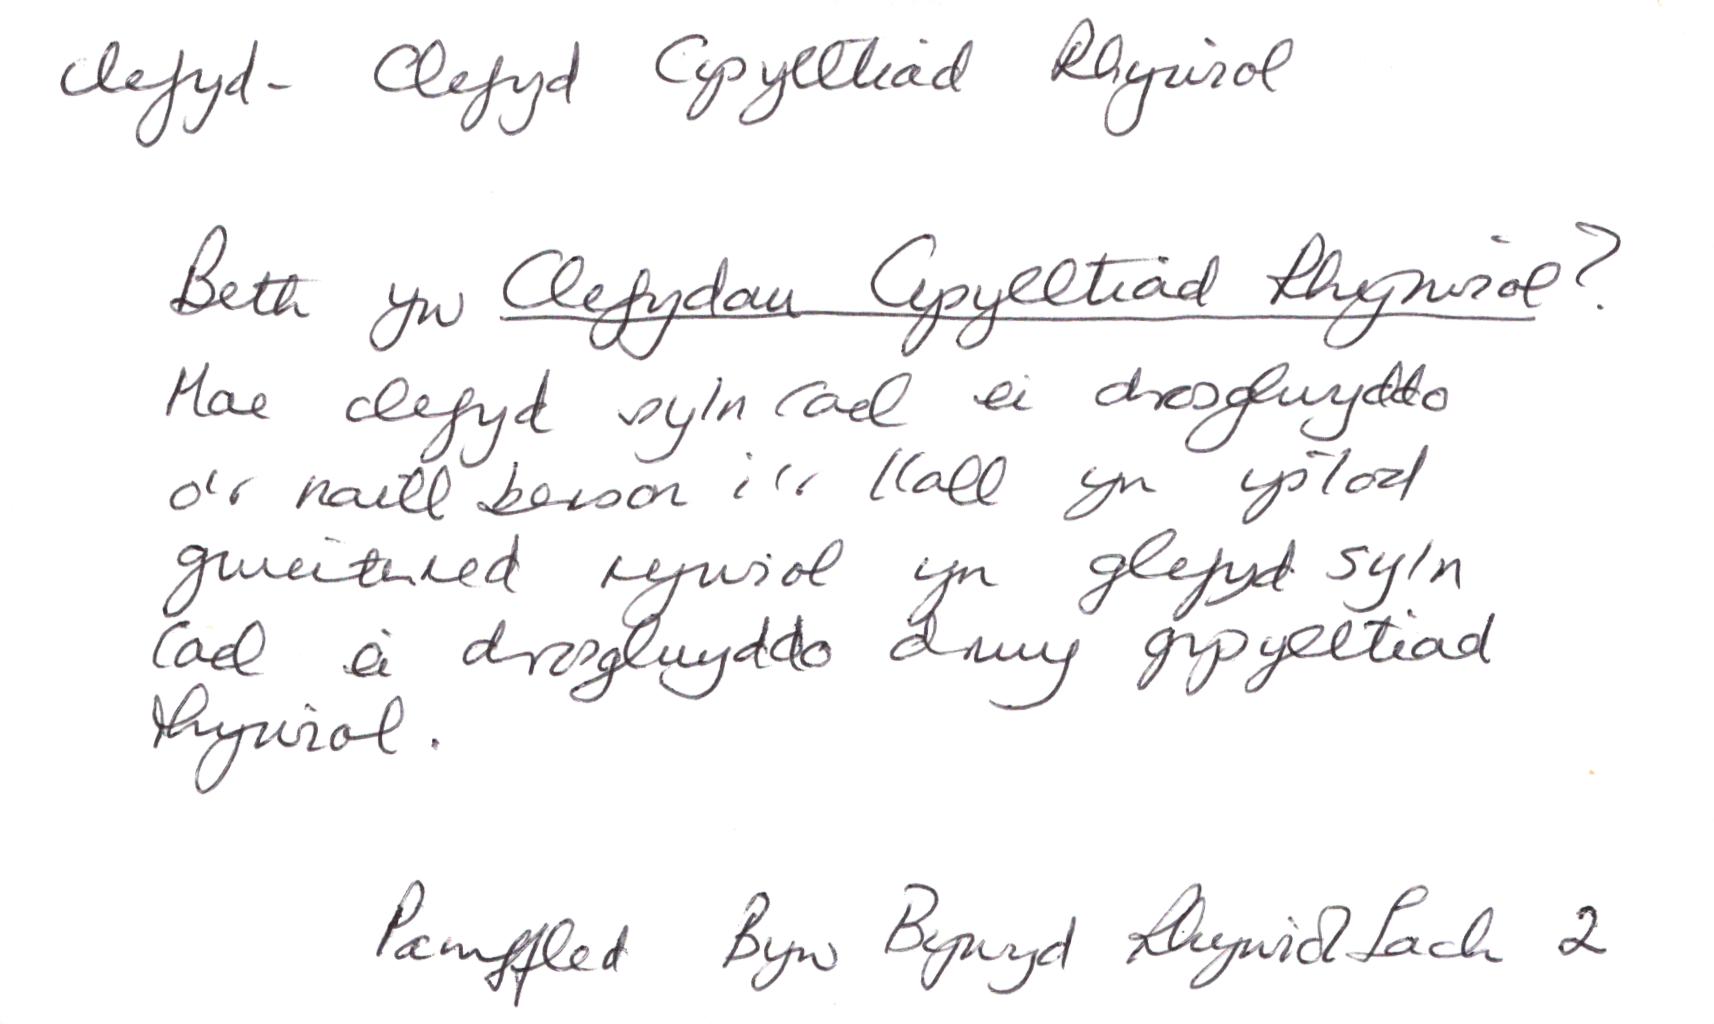 clefyd - Clefyd Cysylltiad Rhywiol
Beth yw Clefydau Cysylltiad Rhywiol?
Mae clefyd sy'n cael ei drosglwyddo
o'r naill berson i'r llall yn ystod
gweithred rywiol yn glefyd sy'n
cael ei drosglwyddo drwy gysylltiad
rhywiol.
Pamffled Byw Bywyd Rhywiol Iach 2